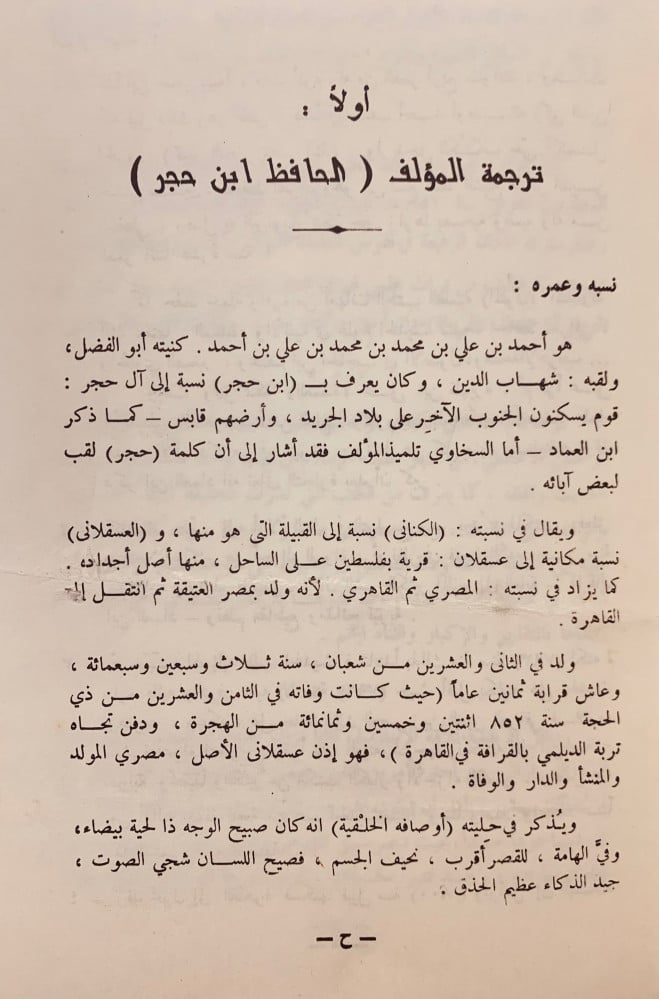 أولاً :
ترجمة المؤلف ( الحافظ ابن حجر )
نسبه وعمره :
هو أحمد بن علي بن محمد بن محمد بن علي بن أحمد . كنيته أبو الفضل،
ولقبه : شهـاب الدين ، وكان يعرف بـ (ابن حجر) نسبة إلى آل حجر :
قوم يسكنون الجنوب الآخِر على بلاد الجريد ، وأرضهم قابس – كمـا ذكر
ابن العماد – أما السخاوي تلميذ المؤلف فقد أشار إلى أن كلمة (حجر) لقب
لبعض آبائه .
ويقال في نسبته : (الكنانى) نسبة إلى القبيلة التى هو منها ، و (العسقلانى)
نسبة مكانية إلى عسقلان : قرية بفلسطين عـلى الساحل ، منها أصل أجداده .
كما يزاد في نسبته : المصري ثم القاهري . لأنه ولد بمصر العتيقة ثم انتقـل إلى
القاهرة .
ولد في الثانى والعشرين مـن شعبان ، سنة ثـلاث وسبعين وسبعمائة ،
وعاش قرابة ثمانين عاماً (حيث كـانت وفاته في الثامن والعشرين مـن ذي
الحجة سنة ٨٥٢ اثنتين وخمسين وثمانمائة مـن الهجرة ، ودفن تجـاه
تربة الديلمي بالقرافة في القاهرة )، فهو إذن عسقلانى الأصل ، مصري المولد
والمنشأ والدار والوفاة .
ويُذكر في حِليته (أوصافه الخلْقية) انه كان صبيح الوجه ذا لحية بيضاء،
وفيَّ الهامة ، للقصر أقرب ، نحيف الجسم ، فصيح اللسـان شجي الصوت ،
جيد الذكاء عظيم الحذق .
– ح –